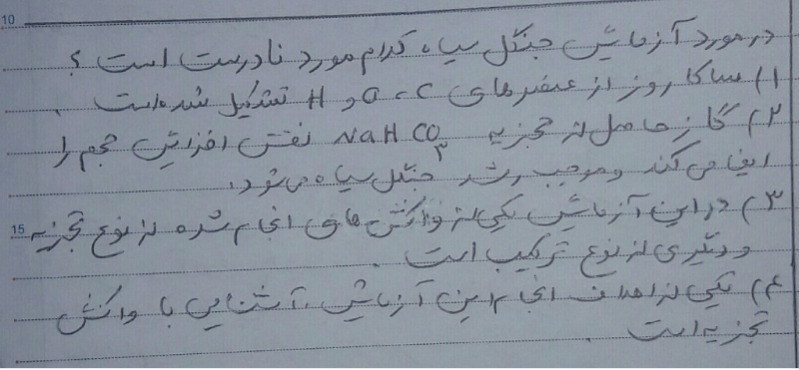 10
در مورد آزمایش جنگل سیاه کدام مورد نادرست است ؟
۱) ساکاروز از عنصرهای C ، O و H تشکیل شده است .
۲) گاز حاصل از تجزیه NaHCO۳ نقش افزایش حجم را
ایفا می کند و موجب رشد جنگل سیاه می شود .
15 ۳) در این آزمایش یکی از واکنش های انجام شده از نوع تجزیه
و دیگری از نوع ترکیب است .
۴) یکی از اهداف انجام این آزمایش ، آشنایی با واکنش
تجزیه است .